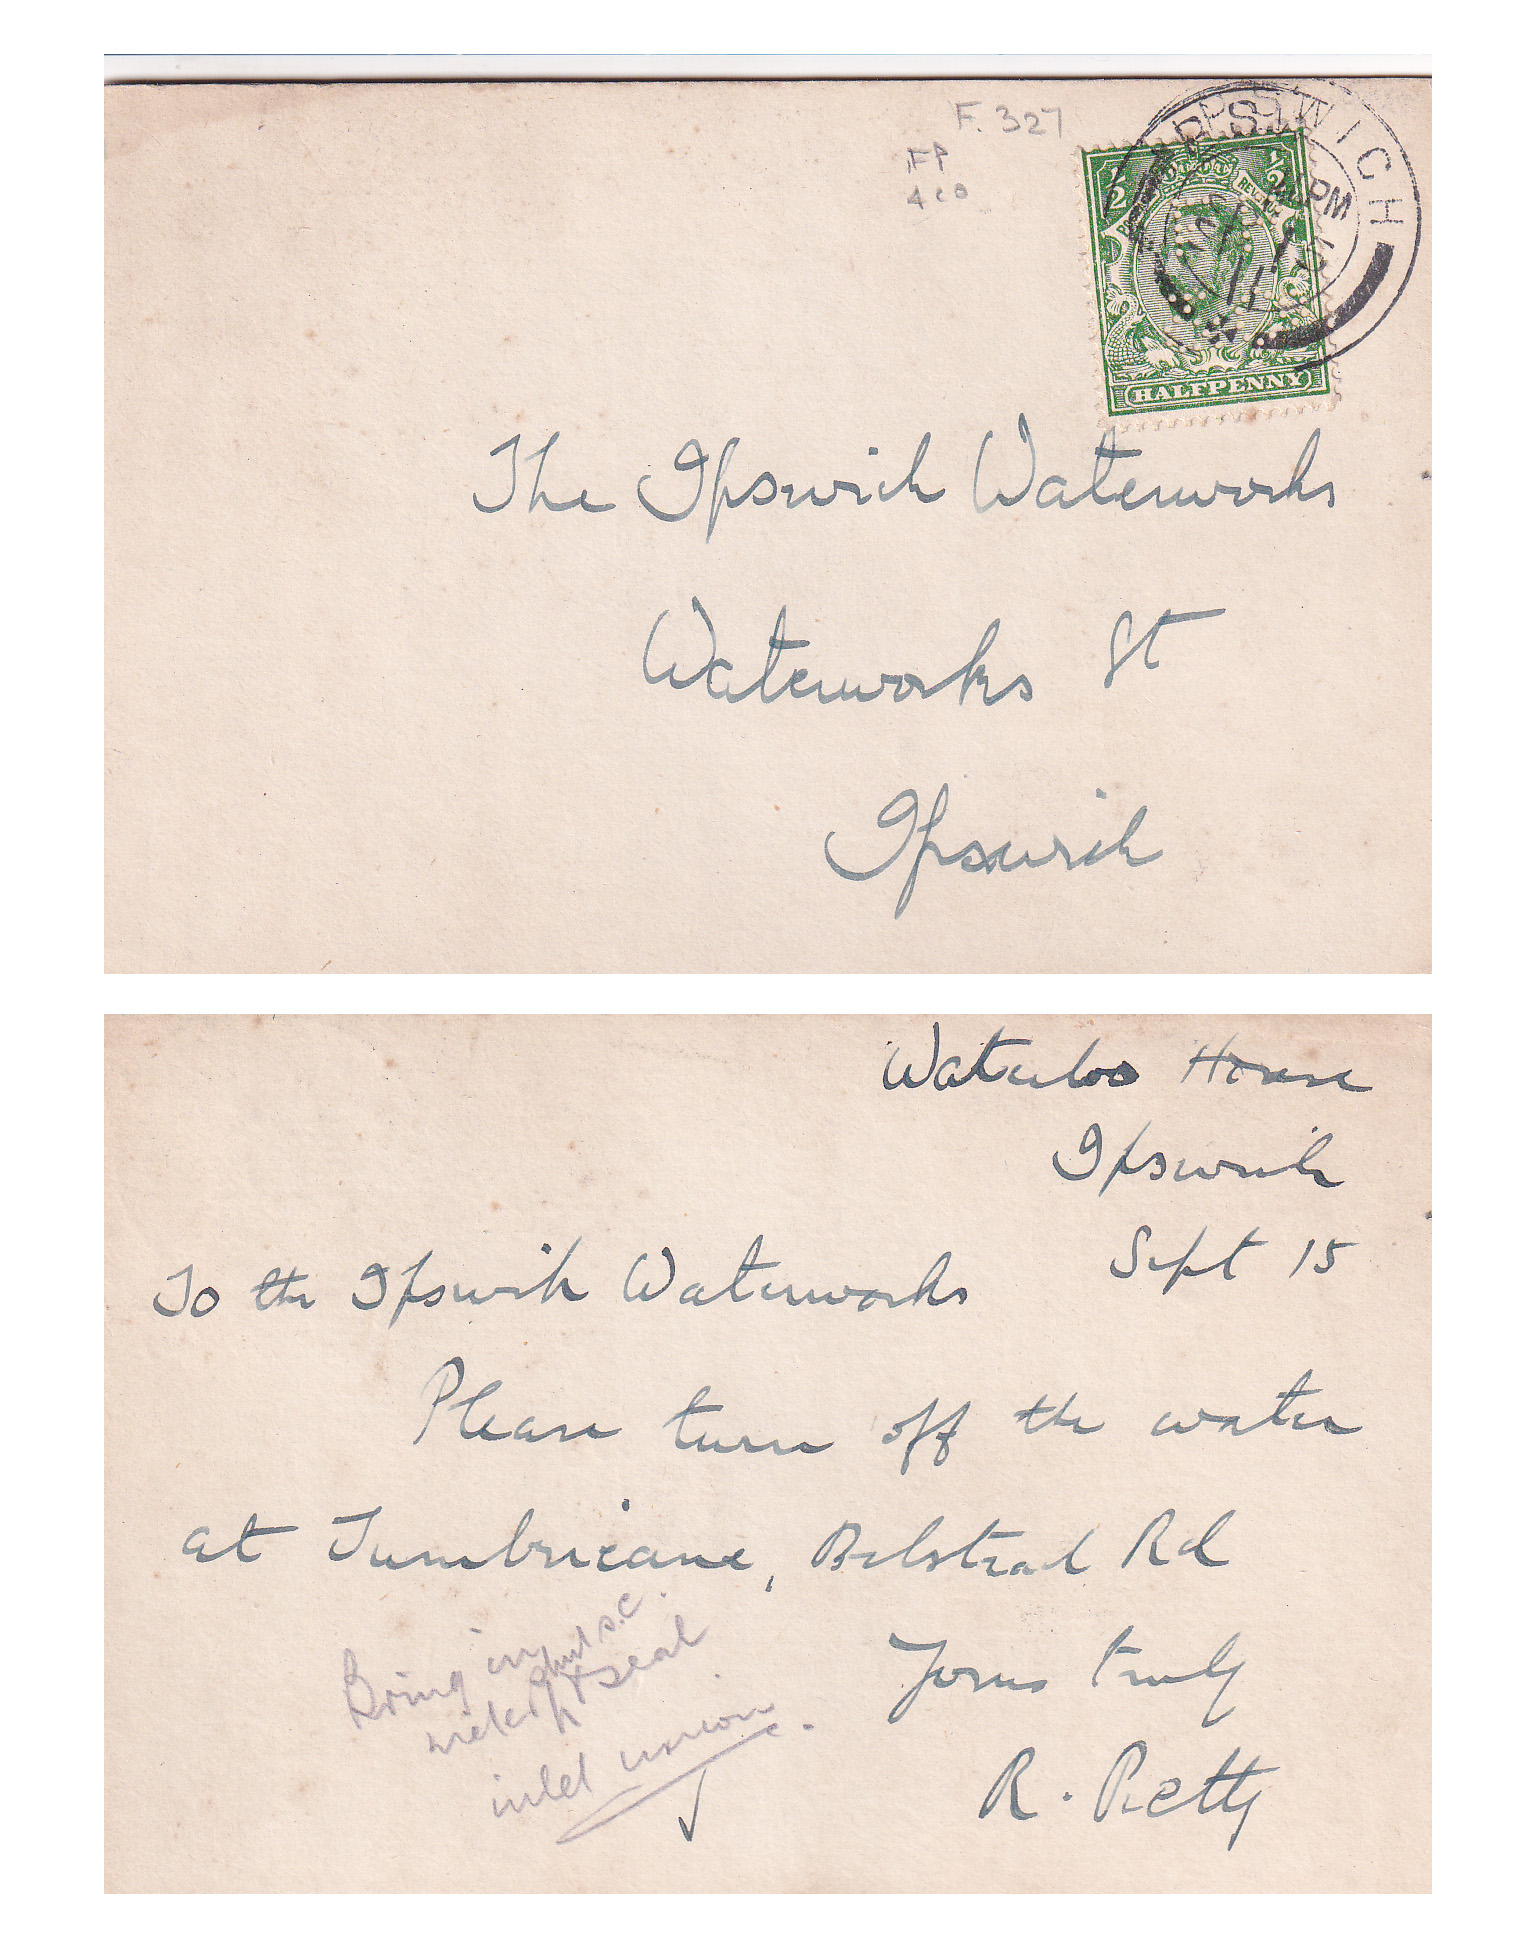 F. 327
FP
4co
IPSWICH
PM
½ ½
REVENUE
HALFPENNY
The Ipswich Waterworks
Waterworks St
Ipswich
Waterloo House
Ipswich
Sept 15
To the Ipswich Waterworks
Please turn off the water
at Tumbricane, Belstead Rd
Yours truly
R. Pretty
Bring in
shut s.c.
meter & seal
inlet union.